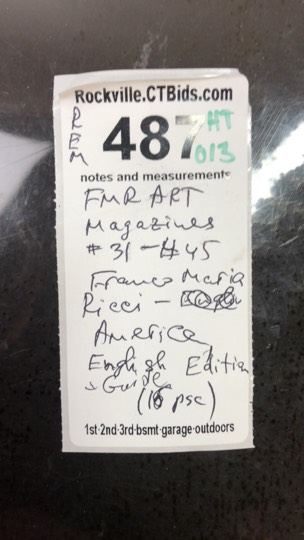 Rockville.CTBids.com
REM
487 HT
013
notes and measurements
FMR ART
Magazines
# 31 - # 45
Franco Maria
Ricci -
America
English Edition
+ Guide
(16 psc)
1st·2nd·3rd·bsmt·garage·outdoors